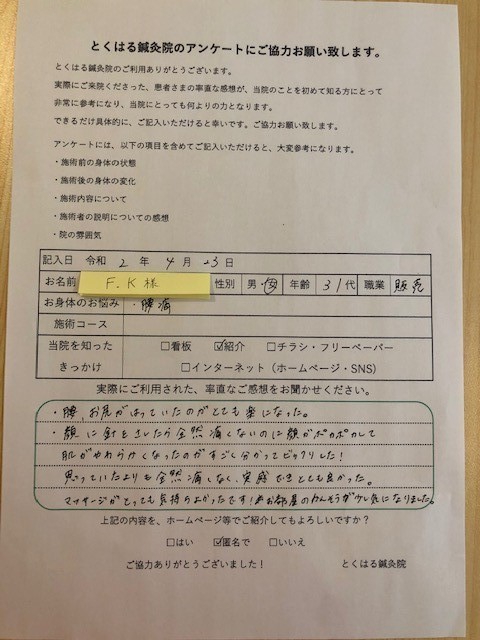 とくはる鍼灸院のアンケートにご協力お願い致します。
とくはる鍼灸院のご利用ありがとうございます。
実際にご来院くださった、患者さまの率直な感想が、当院のことを初めて知る方にとって
非常に参考になり、当院にとっても何よりの力となります。
できるだけ具体的に、ご記入いただけると幸いです。ご協力お願い致します。
アンケートには、以下の項目を含めてご記入いただけると、大変参考になります。
・施術前の身体の状態
・施術後の身体の変化
・施術内容について
・施術者の説明についての感想
・院の雰囲気
記入日 令和 2 年 4 月 23 日
お名前 F.K様 性別 男・女 年齢 31代 職業 販売
お身体のお悩み ・腰痛
施術コース
当院を知った □看板 ☑紹介 □チラシ・フリーペーパー
きっかけ □インターネット（ホームページ・SNS）
実際にご利用された、率直なご感想をお聞かせください。
・腰、お尻がはっていたのがとても楽になった。
・顔に針をさしたら全然痛くないのに顔がポカポカして
肌がやわらかくなったのがすごく分かってビックリした！
思っていたよりも全然痛くなく、実感できとても良かった。
マッサージがとっても気持ちよかったです！お部屋のかんそうが少し気になりました。
上記の内容を、ホームページ等でご紹介してもよろしいですか？
□はい ☑匿名で □いいえ
ご協力ありがとうございました！ とくはる鍼灸院